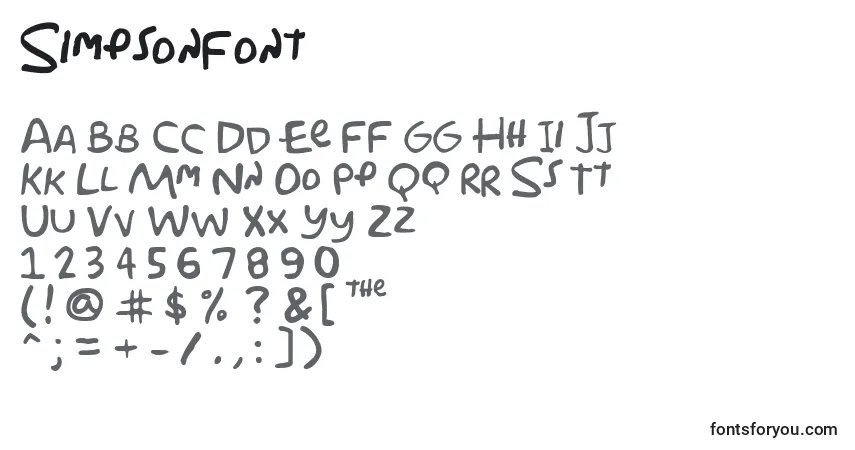 SimpsonFont
Aa Bb Cc Dd Ee Ff Gg Hh Ii Jj
Kk Ll Mm Nn Oo Pp Qq Rr Ss Tt
Uu Vv Ww Xx Yy Zz
1 2 3 4 5 6 7 8 9 0
( ! @ # $ % ? & [ THE
^ ; = + - / . , : ] )
fontsforyou.com